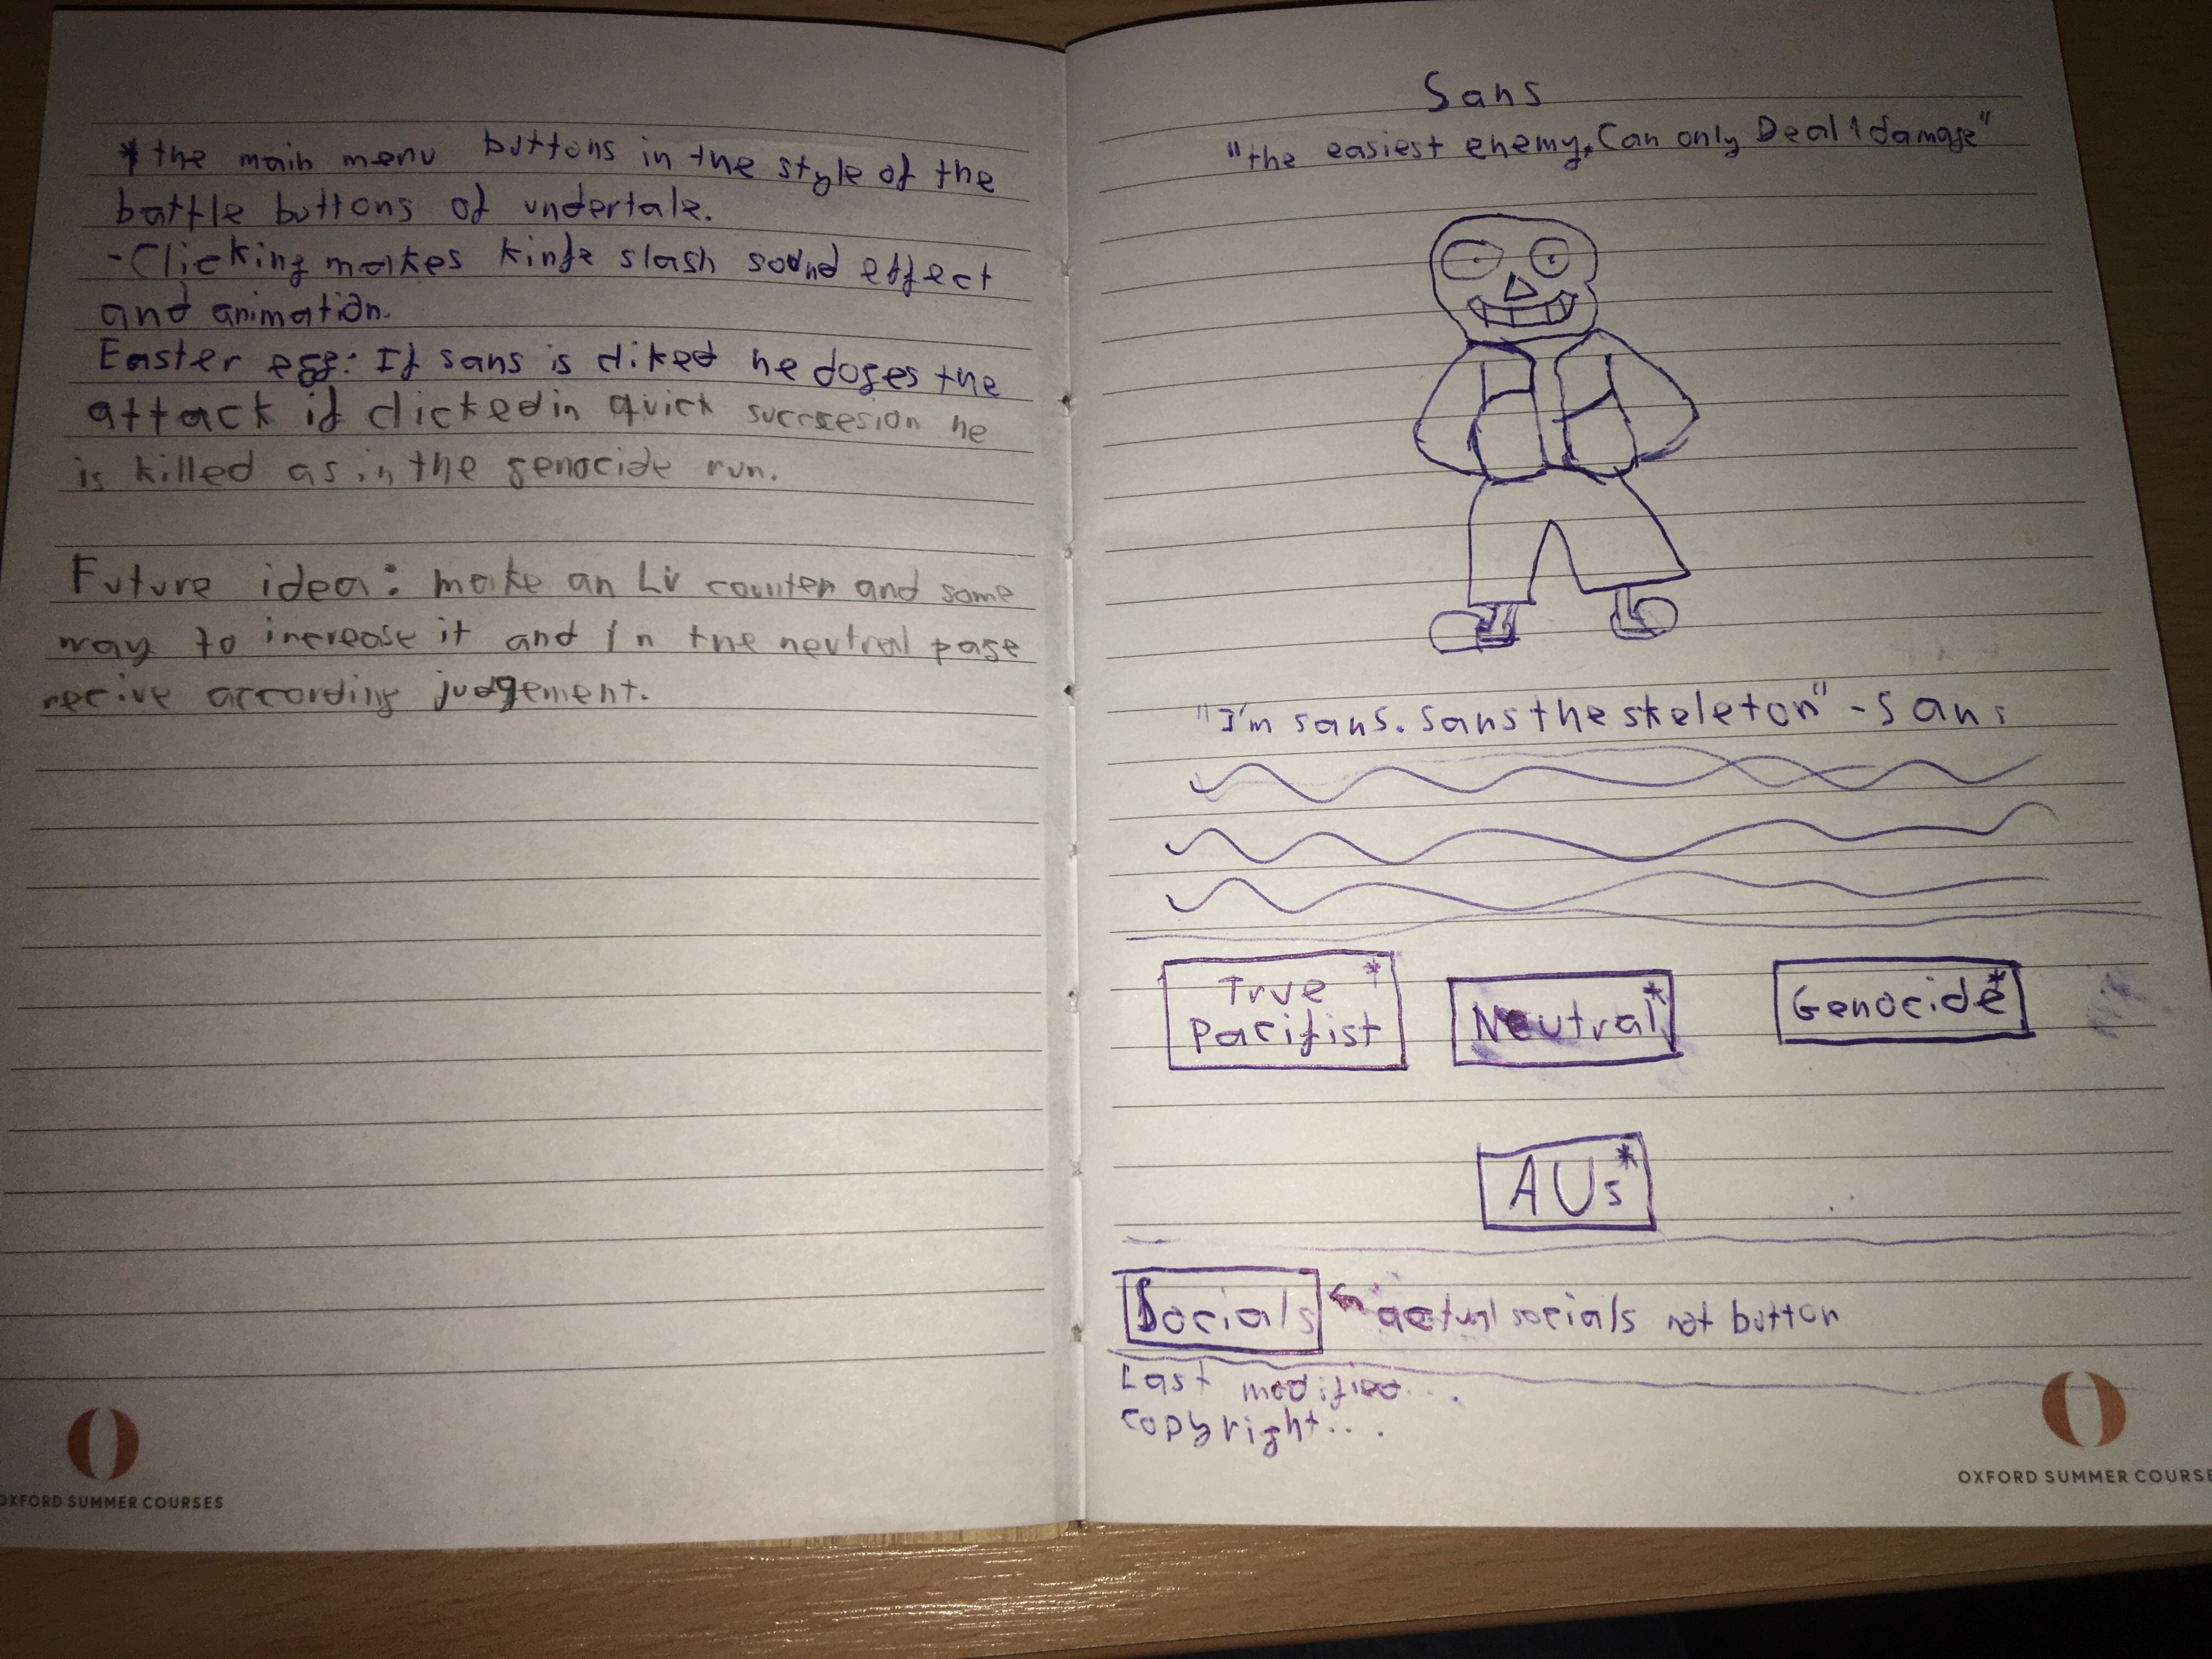 * the main menu buttons in the style of the
battle buttons of undertale.
- Clicking makes kinfe slash sound effect
and animation.
Easter egg: If sans is cliked he doges the
attack if clicked in quick succsesion he
is killed as in the genocide run.
Future idea: make an LV counter and some
way to increase it and in the neutral page
recive according judgement.
OXFORD SUMMER COURSES
Sans
"the easiest enemy. Can only Deal 1 damage"
"I'm sans. sans the skeleton" - sans
True *
Pacifist
Neutral *
Genocide *
AUs *
Socials ← actual socials not button
Last modified...
copyright...
OXFORD SUMMER COURSE